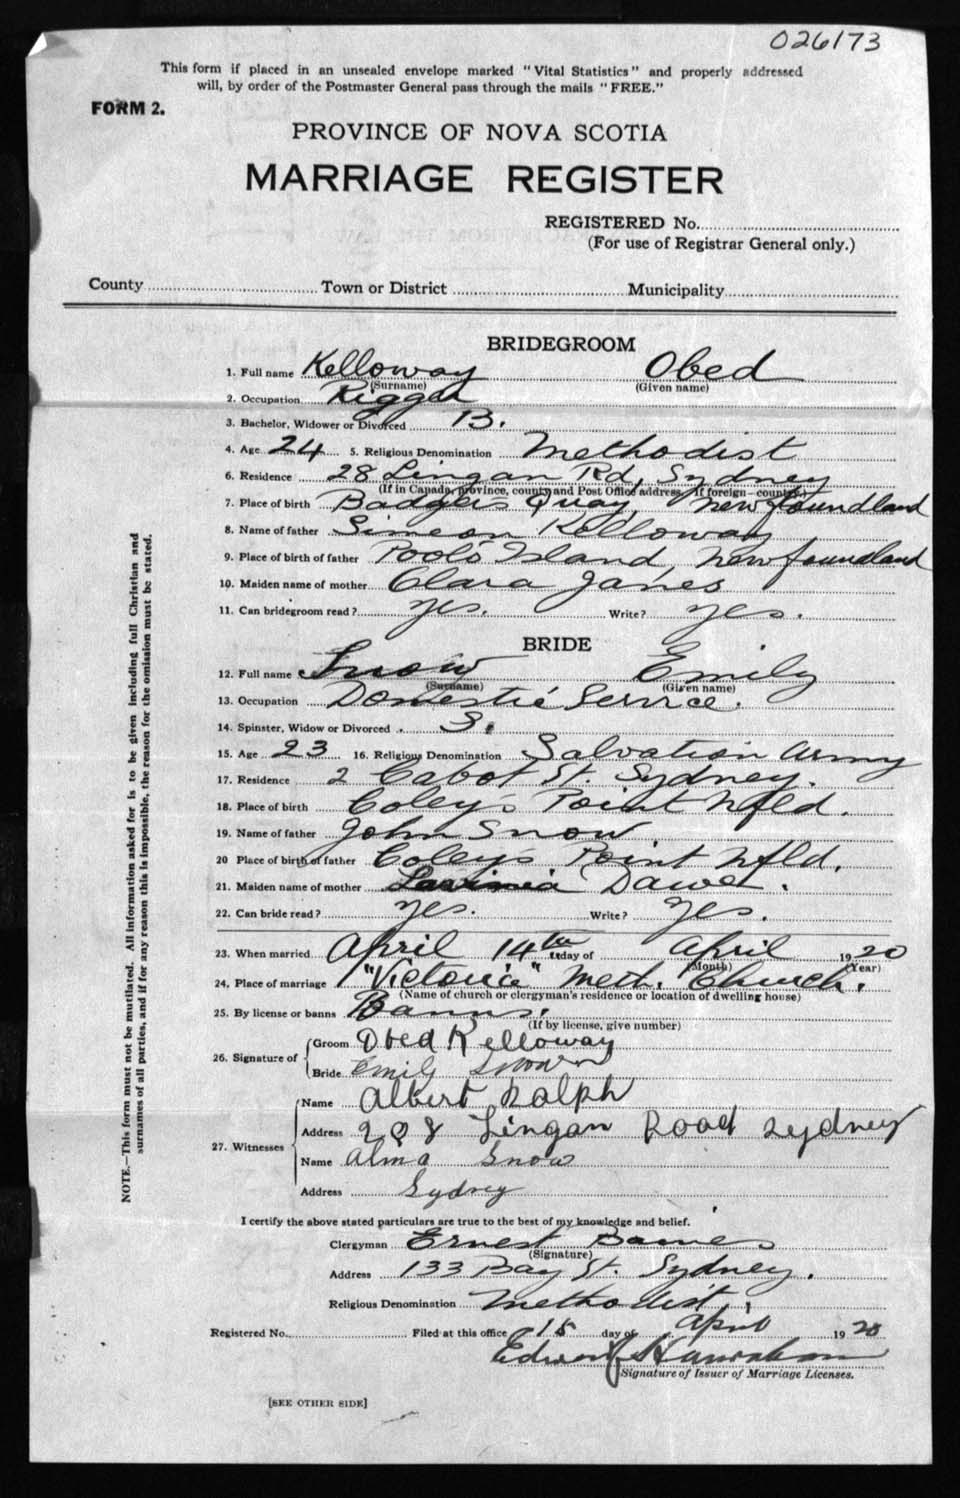 026173
This form if placed in an unsealed envelope marked "Vital Statistics" and properly addressed
will, by order of the Postmaster General pass through the mails "FREE."
FORM 2.
PROVINCE OF NOVA SCOTIA
MARRIAGE REGISTER
REGISTERED No.
(For use of Registrar General only.)
County Town or District Municipality
BRIDEGROOM
1. Full name Kelloway Obed
(Surname) (Given name)
2. Occupation Rigger
3. Bachelor, Widower or Divorced B.
4. Age 24 5. Religious Denomination Methodist
6. Residence 28 Lingan Rd, Sydney
(If in Canada, province, county and Post Office address, if foreign—country.)
7. Place of birth Badgers Quay, Newfoundland
8. Name of father Simeon Kelloway
9. Place of birth of father Pool's Island, Newfoundland
10. Maiden name of mother Clara Janes
11. Can bridegroom read? Yes. Write? Yes.
BRIDE
12. Full name Snow Emily
(Surname) (Given name)
13. Occupation Domestic Service.
14. Spinster, Widow or Divorced S.
15. Age 23 16. Religious Denomination Salvation Army
17. Residence 2 Cabot St. Sydney.
18. Place of birth Coley's Point Nfld.
19. Name of father John Snow
20 Place of birth of father Coley's Point Nfld.
21. Maiden name of mother Dawe.
22. Can bride read? Yes. Write? Yes.
23. When married April 14th day of April 1920
(Month) (Year)
24. Place of marriage "Victoria" Meth. Church.
(Name of church or clergyman's residence or location of dwelling house)
25. By license or banns Banns.
(If by license, give number)
26. Signature of
Groom Obed Kelloway
Bride Emily Snow
27. Witnesses
Name Albert Ralph
Address Lingan Road Sydney
Name Alma Snow
Address Sydney
I certify the above stated particulars are true to the best of my knowledge and belief.
Clergyman Ernest
(Signature)
Address 133 Bay St. Sydney.
Religious Denomination Methodist.
Registered No. Filed at this office 15 day of April 1920
Signature of Issuer of Marriage Licenses.
[SEE OTHER SIDE]
NOTE.—This form must not be mutilated. All information asked for is to be given including full Christian and
surnames of all parties, and if for any reason this is impossible, the reason for the omission must be stated.